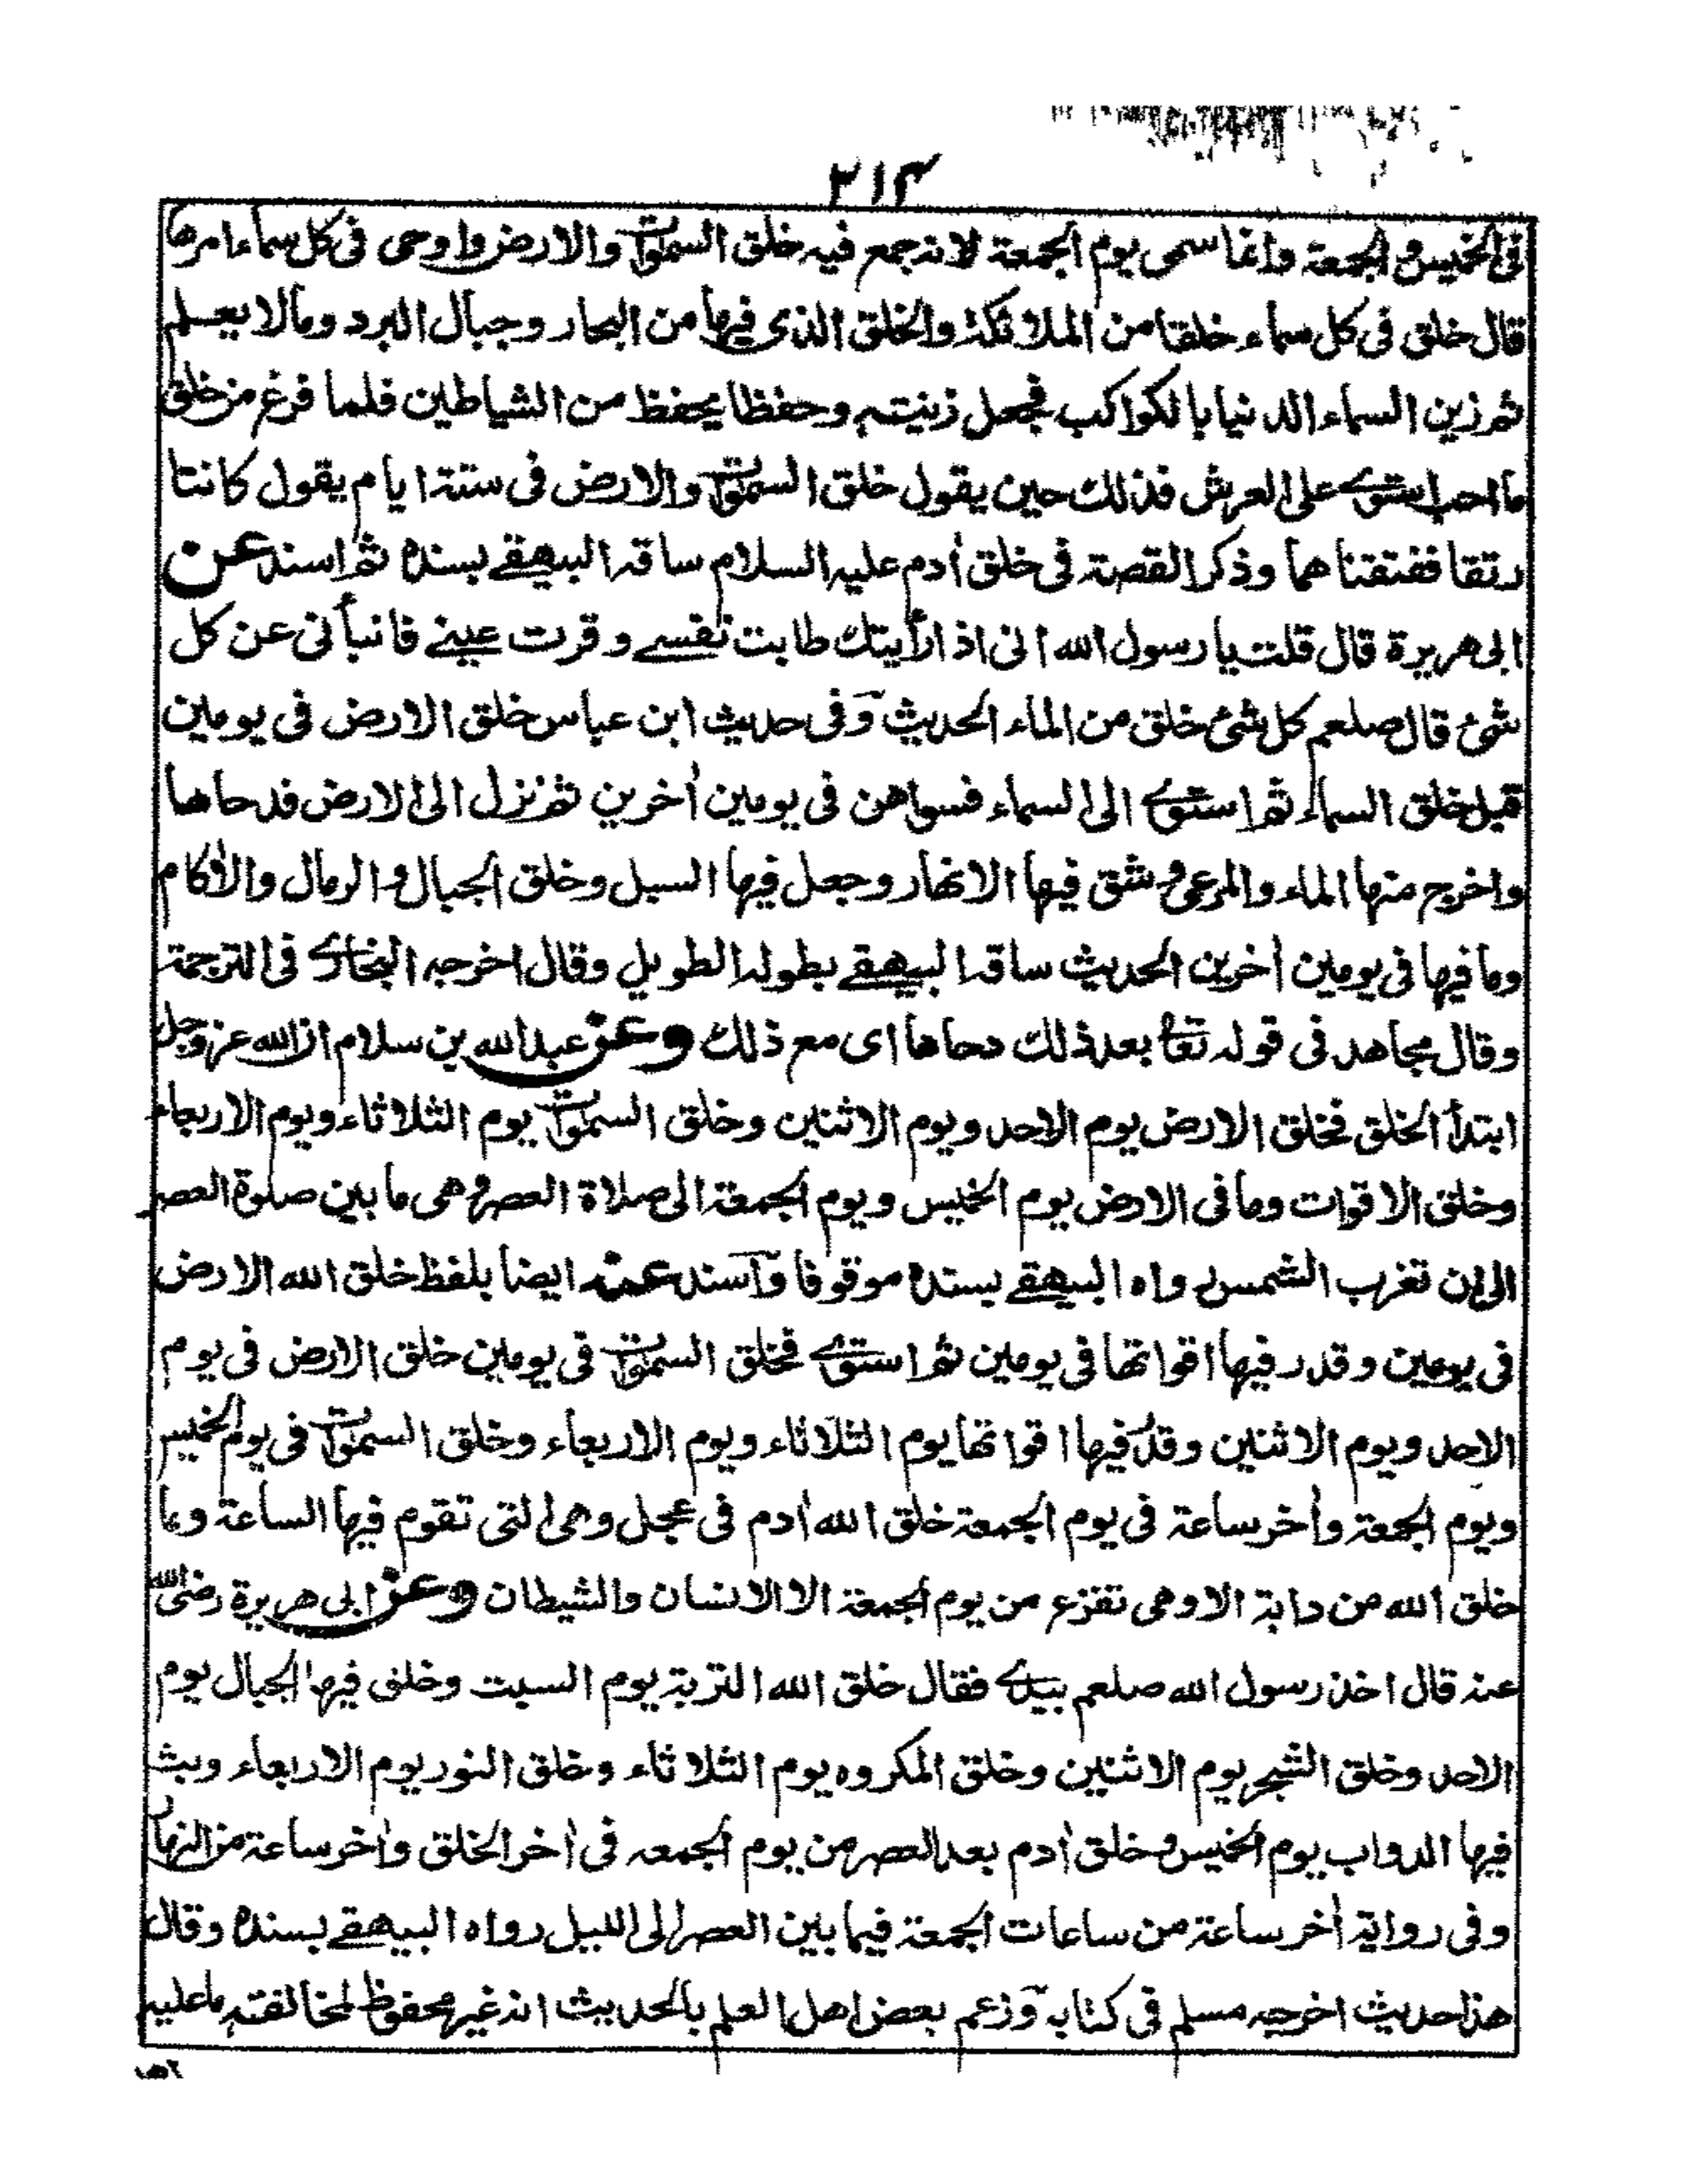 ٢١٣
فى الخميس والجمعة وانما سمى يوم الجمعة لانه جمع فيه خلق السموات والارض واوحى فى كل سماء امرها
قال خلق فى كل سماء خلقا من الملائكة والخلق الذى فيها من البحار وجبال البرد ومالا يعلم
ثم زين السماء الدنيا بالكواكب فجعل زينة وحفظا يحفظ من الشياطين فلما فرغ من خلق
ما احب استوى على العرش فذلك حين يقول خلق السموات والارض فى ستة ايام يقول كانتا
رتقا ففتقناهما وذكر القصة فى خلق أدم عليه السلام ساقه البيهقے بسنده ثم اسند عن
ابى هريرة قال قلت يا رسول الله انى اذا رأيتك طابت نفسے وقرت عينے فانبأنى عن كل
شئ قال صلعم كل شئ خلق من الماء الحديث وفى حديث ابن عباس خلق الارض فى يومين
قبل خلق السماء ثم استوے الى السماء فسواهن فى يومين أخرين ثم نزل الى الارض فدحاها
واخرج منها الماء والمرعى وشق فيها الانهار وجعل فيها السبل وخلق الجبال والرمال والأكام
وما فيها فى يومين أخرين الحديث ساقه البيهقے بطوله الطويل وقال اخرجه البخارے فى الترجمة
وقال مجاهد فى قوله تعا بعد ذلك دحاها اى مع ذلك وعن عبد الله بن سلام ان الله عز وجل
ابتدأ الخلق فخلق الارض يوم الاحد ويوم الاثنين وخلق السموات يوم الثلاثاء ويوم الاربعاء
وخلق الاقوات وما فى الارض يوم الخميس ويوم الجمعة الى صلاة العصر وهى ما بين صلوة العصر
الى ان تغرب الشمس رواه البيهقے بسنده موقوفا وأسند عنه ايضا بلفظ خلق الله الارض
فى يومين وقدر فيها اقواتها فى يومين ثم استوے فخلق السموات فى يومين خلق الارض فى يوم
الاحد ويوم الاثنين وقدر فيها اقواتها يوم الثلاثاء ويوم الاربعاء وخلق السموات فى يوم الخميس
ويوم الجمعة وأخر ساعة فى يوم الجمعة خلق الله أدم فى عجل وهى التى تقوم فيها الساعة وما
خلق الله من دابة الا وهى تفزع من يوم الجمعة الا الانسان والشيطان وعن ابى هريرة رضى الله
عنه قال اخذ رسول الله صلعم بيدے فقال خلق الله التربة يوم السبت وخلق فيها الجبال يوم
الاحد وخلق الشجر يوم الاثنين وخلق المكروه يوم الثلاثاء وخلق النور يوم الاربعاء وبث
فيها الدواب يوم الخميس وخلق أدم بعد العصر من يوم الجمعه فى أخر الخلق وأخر ساعة من النهار
وفى رواية أخر ساعة من ساعات الجمعة فيما بين العصر الى الليل رواه البيهقے بسنده وقال
هذا حديث اخرجه مسلم فى كتابه وزعم بعض اهل العلم بالحديث انه غير محفوظ لمخالفته ما عليه